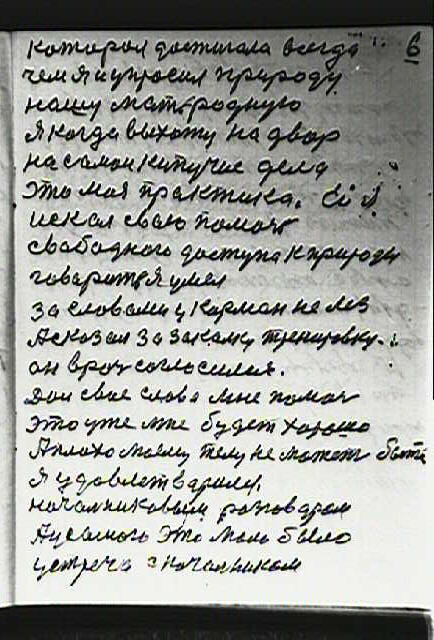 6
которая достигала всегда
чем я и упросил природу
нашу мать родную
Я когда выхожу на двор
на самои кипучие дела
это моя практика. Ей я
искал свою помоч
свободного доступа к природи
говорится я умел
За словами у карман не лез
А сказал за закалку тренировку.
он врач согласился.
Дай свое слова мне помоч
Это уже мне будет хорошо
А плохо моему телу не может быть
Я удовлетварился.
начальниковым разговаром
А у самого это мало было
устреча з начальником